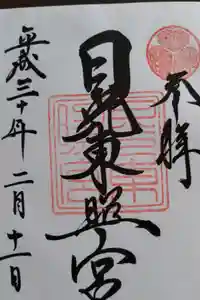 奉拝
日光東照宮
平成三十年二月十一日